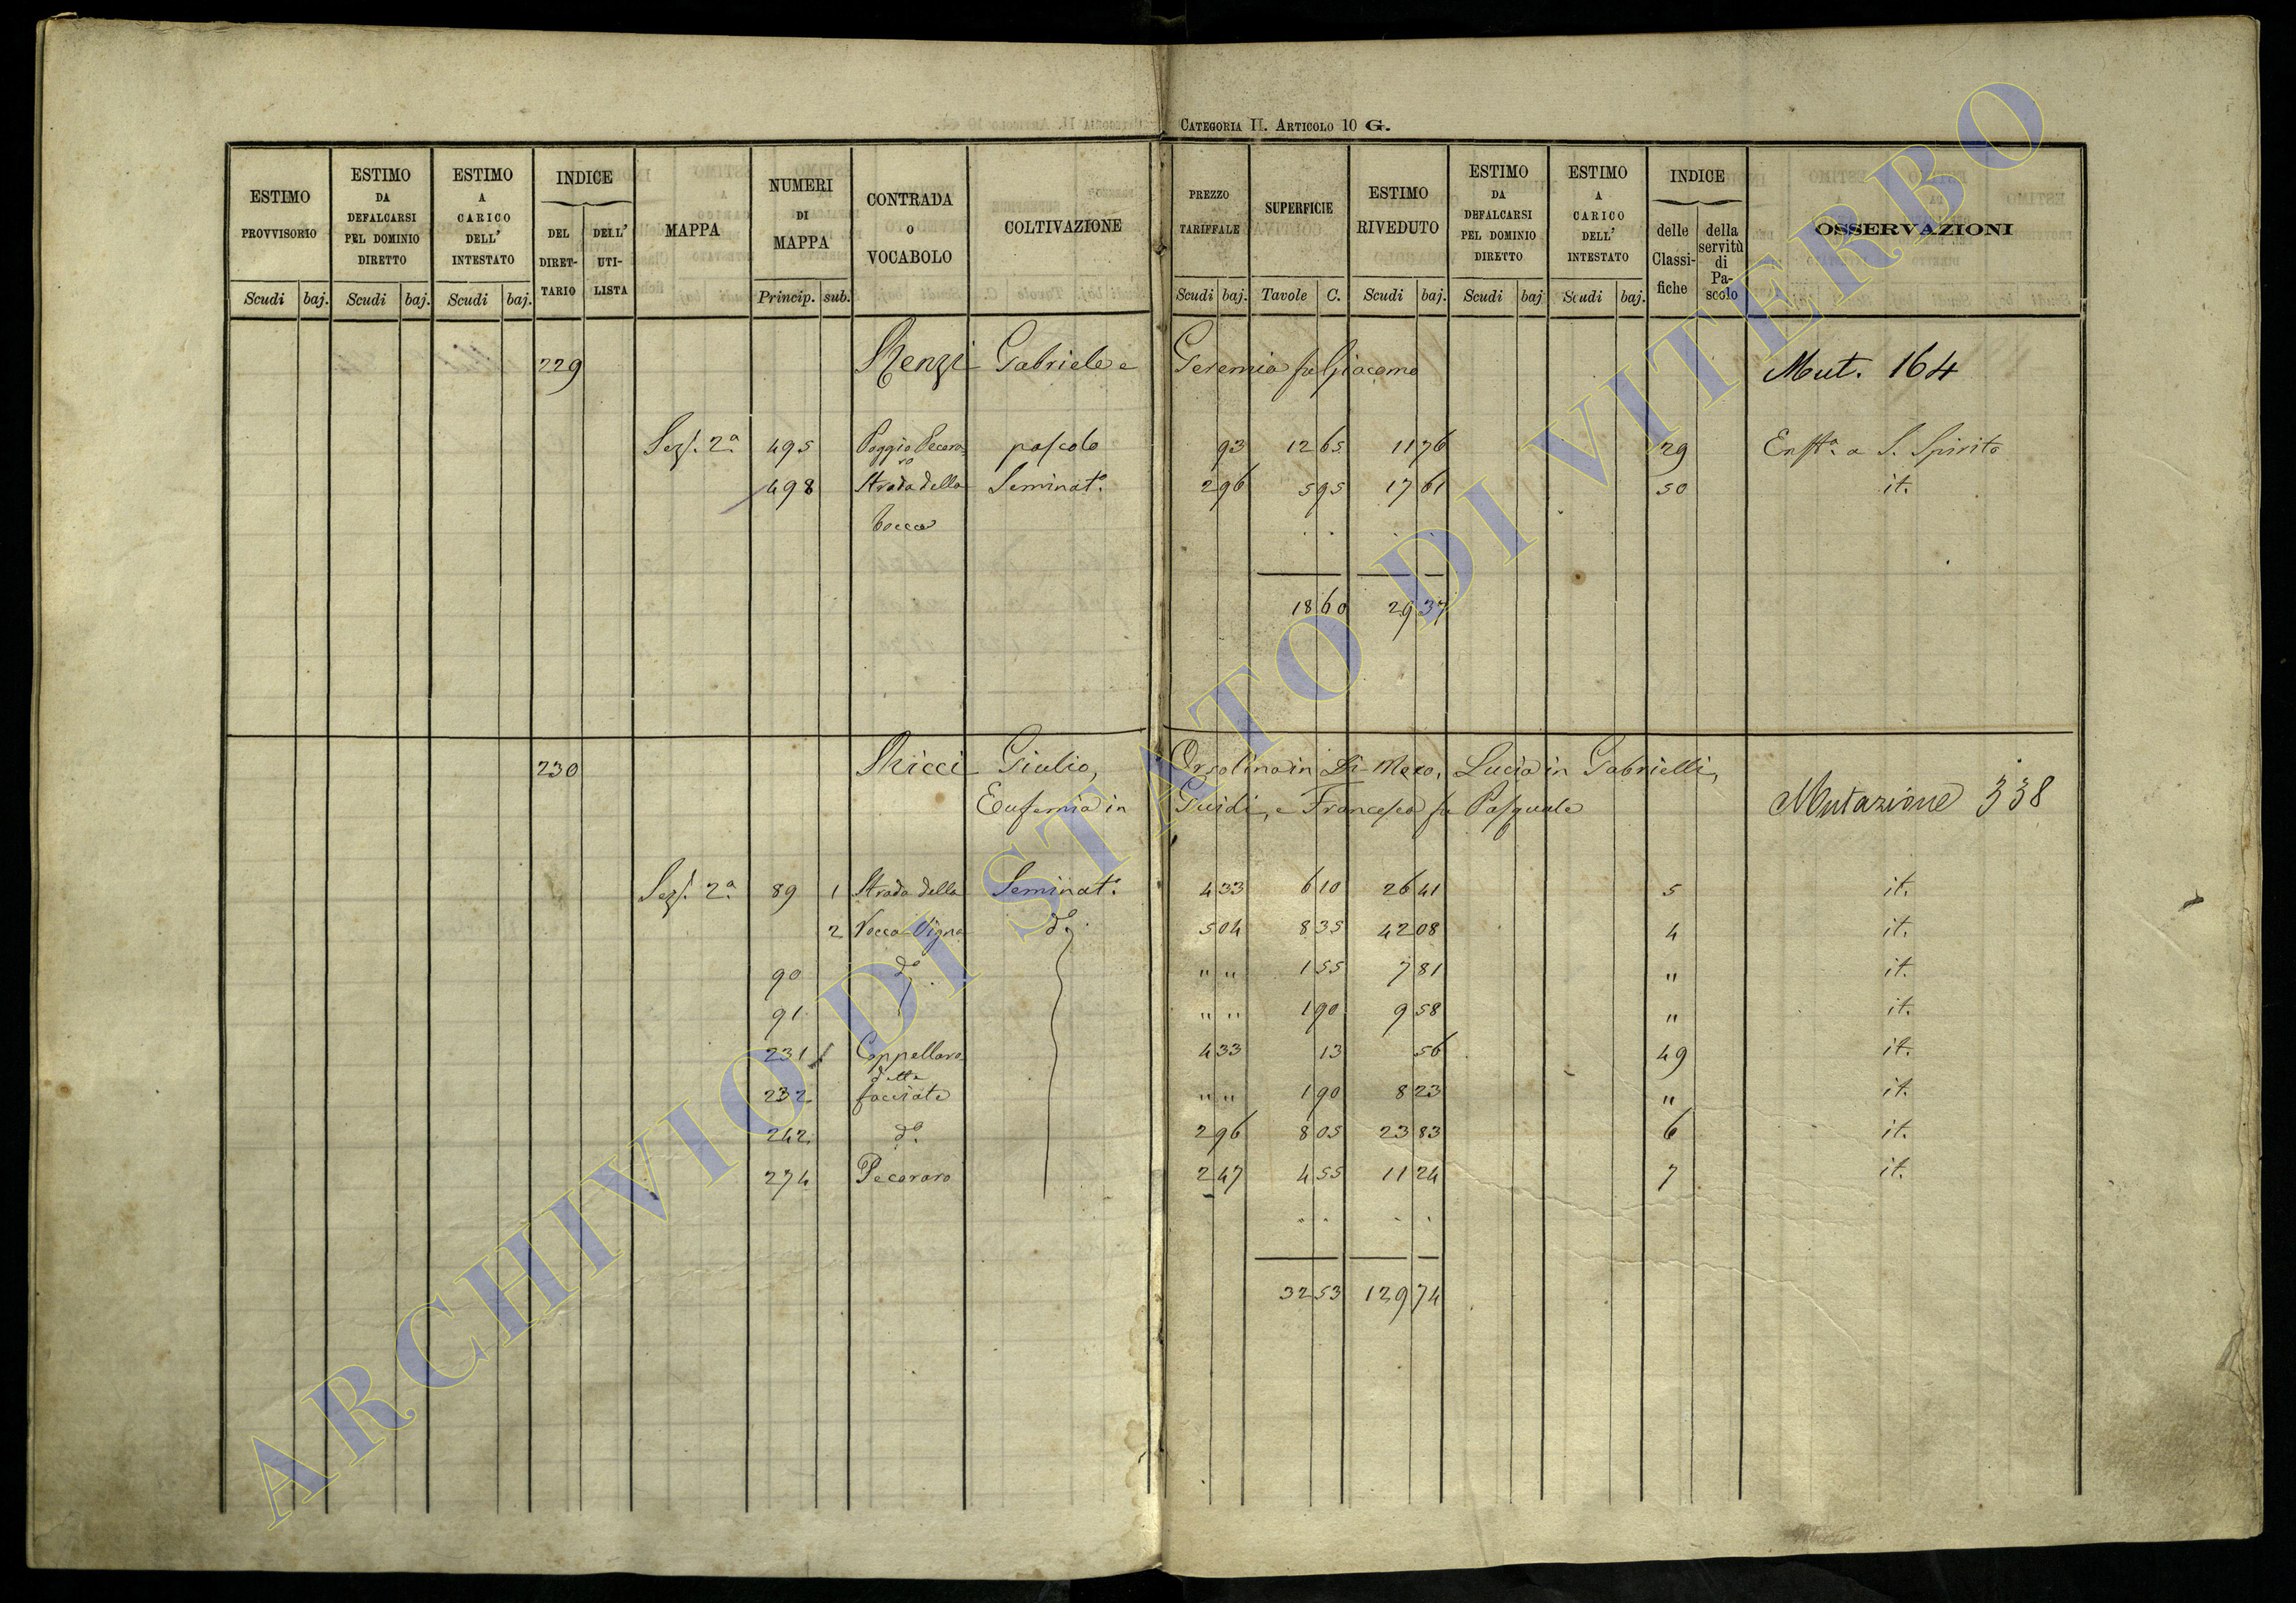 CATEGORIA II. ARTICOLO 10 G.
ESTIMO PROVVISORIO
ESTIMO DA DEFALCARSI PEL DOMINIO DIRETTO
ESTIMO A CARICO DELL' INTESTATO
INDICE
DEL DIRETTARIO
DELL' UTILISTA
MAPPA
NUMERI DI MAPPA
CONTRADA O VOCABOLO
COLTIVAZIONE
PREZZO TARIFFALE
SUPERFICIE
ESTIMO RIVEDUTO
ESTIMO DA DEFALCARSI PEL DOMINIO DIRETTO
ESTIMO A CARICO DELL' INTESTATO
INDICE
delle Classifiche
della servitù di Pascolo
OSSERVAZIONI
Scudi baj. Scudi baj. Scudi baj. Princip. sub. Scudi baj. Tavole C. Scudi baj. Scudi baj Scudi baj.
229 Renzi Gabriele e Geremia fu Giacomo Mut. 164
Sez. 2a 495 Poggio Pecoraro pascolo 93 12 65 11 76 29 Enfta a S. Spirito
498 Strada della Seminato 2 96 5 95 17 61 50 it.
bocca
18 60 29 37
230 Ricci Giulio, Orsolina in Di-Meco, Lucia in Gabrielli,
Eufemia in Guidi, e Francesca fu Pasquale Mutazione 338
Sez. 2a 89 1 Strada della Seminato 4 33 6 10 26 41 5 it.
2 Vocca-Vigna do 5 04 8 35 42 08 4 it.
90 do " " 1 55 7 81 " it.
91 " " 1 90 9 58 " it.
231 Cappellara 4 33 13 56 49 it.
detta
232 facciate " " 1 90 8 23 " it.
242 do 2 96 8 05 23 83 6 it.
274 Pecoraro 2 47 4 55 11 24 7 it.
32 53 129 74
ARCHIVIO DI STATO DI VITERBO